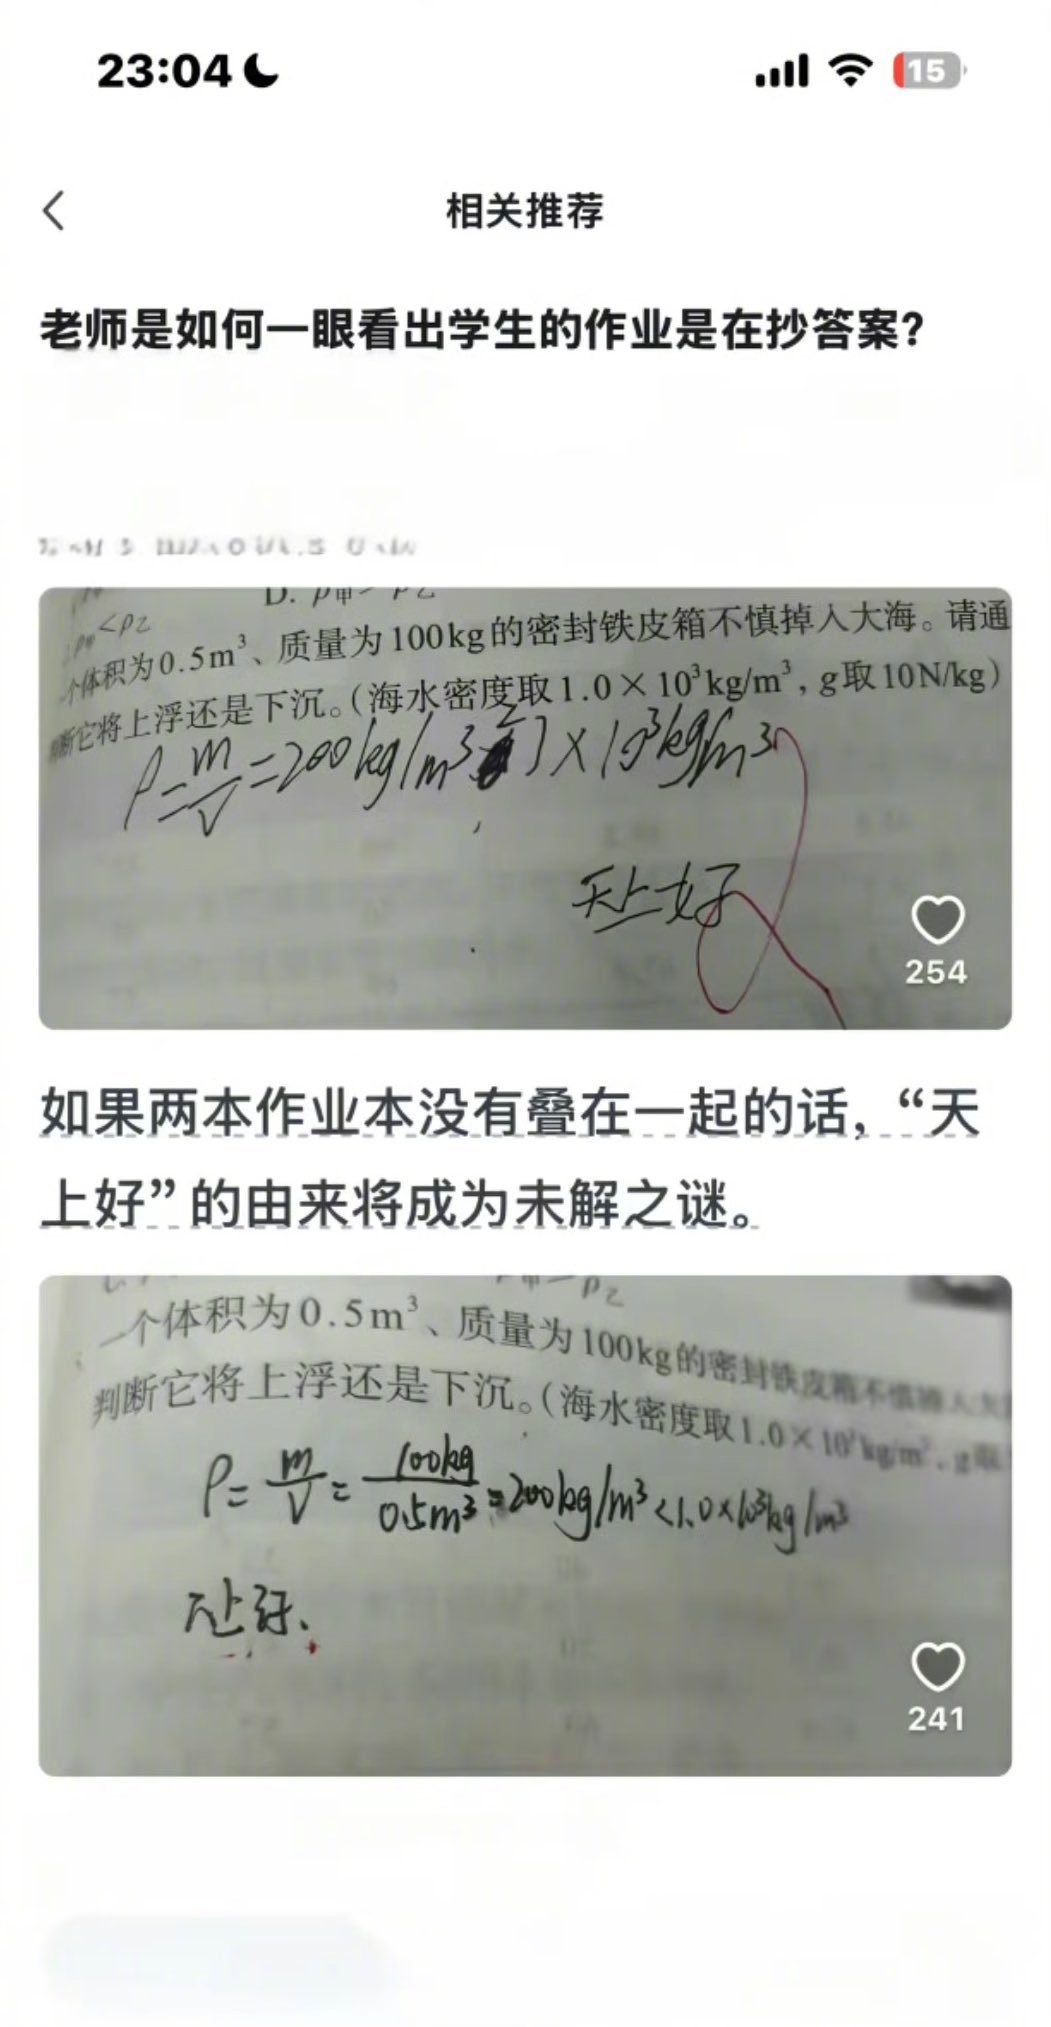 23:04
15
相关推荐
老师是如何一眼看出学生的作业是在抄答案?
D. ρ甲> ρ乙
<ρ乙
个体积为0.5m³、质量为100kg的密封铁皮箱不慎掉入大海。请通
判断它将上浮还是下沉。(海水密度取1.0×10³kg/m³,g取10N/kg)
ρ=m/V=200kg/m³ ×10³kg/m³
天上好
254
如果两本作业本没有叠在一起的话,“天
上好”的由来将成为未解之谜。
ρ乙
一个体积为0.5m³、质量为100kg的密封铁皮箱不慎掉入大
判断它将上浮还是下沉。(海水密度取1.0×10³kg/m³,g取
ρ=m/V=100kg/0.5m³=200kg/m³<1.0×10³kg/m³
241